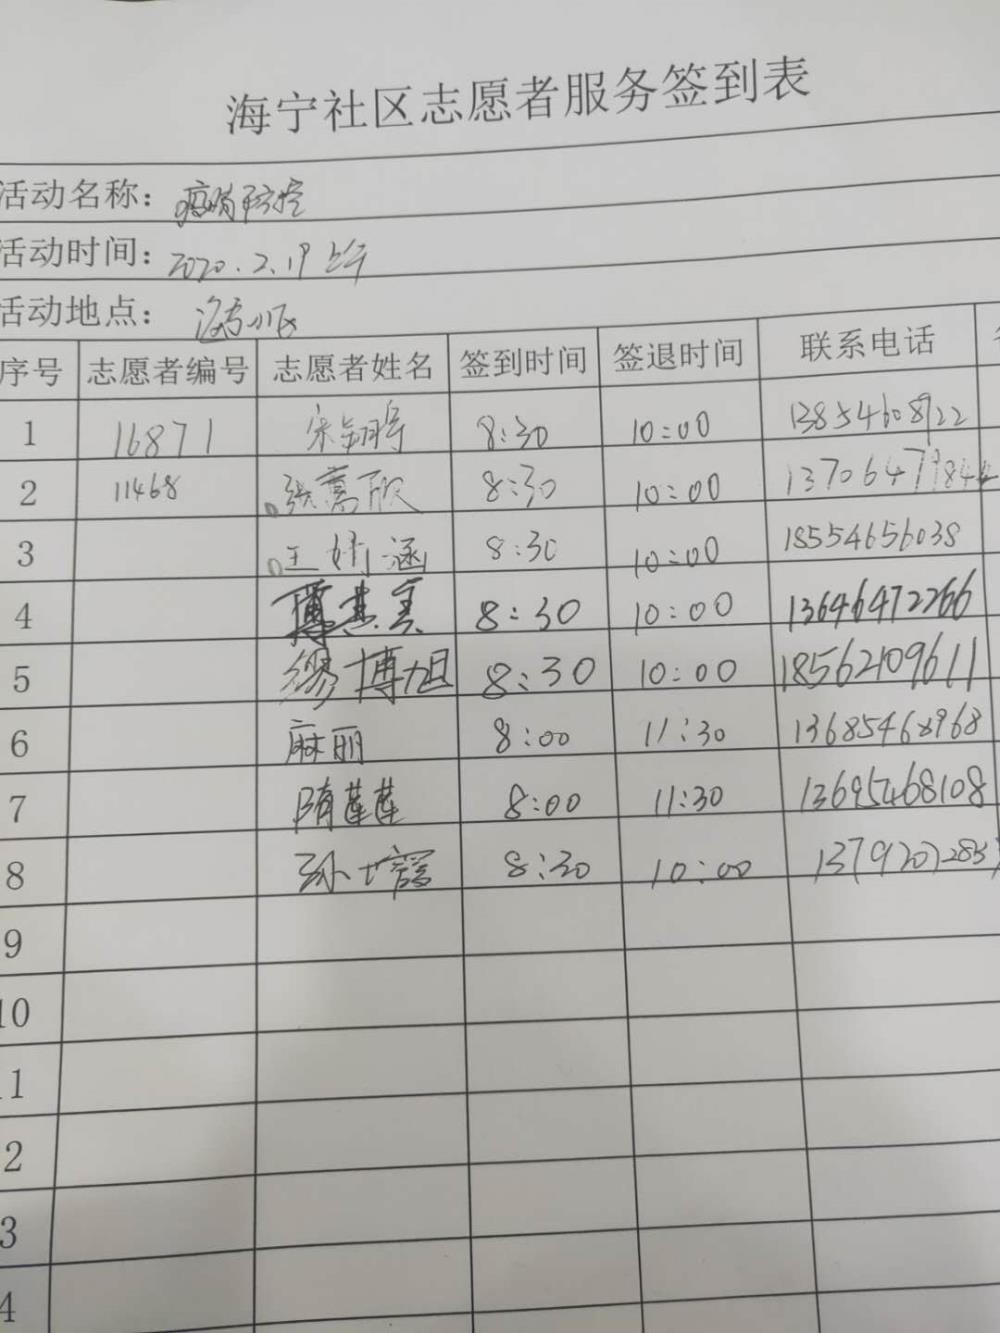 海宁社区志愿者服务签到表
活动名称：疫情防控
活动时间：2020.2.19 上午
活动地点：海宁小区
序号 志愿者编号 志愿者姓名 签到时间 签退时间 联系电话
1 16871 宋 8:30 10:00 13854608922
2 11468 张嘉欣 8:30 10:00
3 王婧涵 8:30 10:00 18554656038
4 8:30 10:00 13646472266
5 缪博旭 8:30 10:00 18562109611
6 麻丽 8:00 11:30 13685468968
7 隋莲莲 8:00 11:30 13695468108
8 孙 8:30 10:00
9
10
11
2
3
4